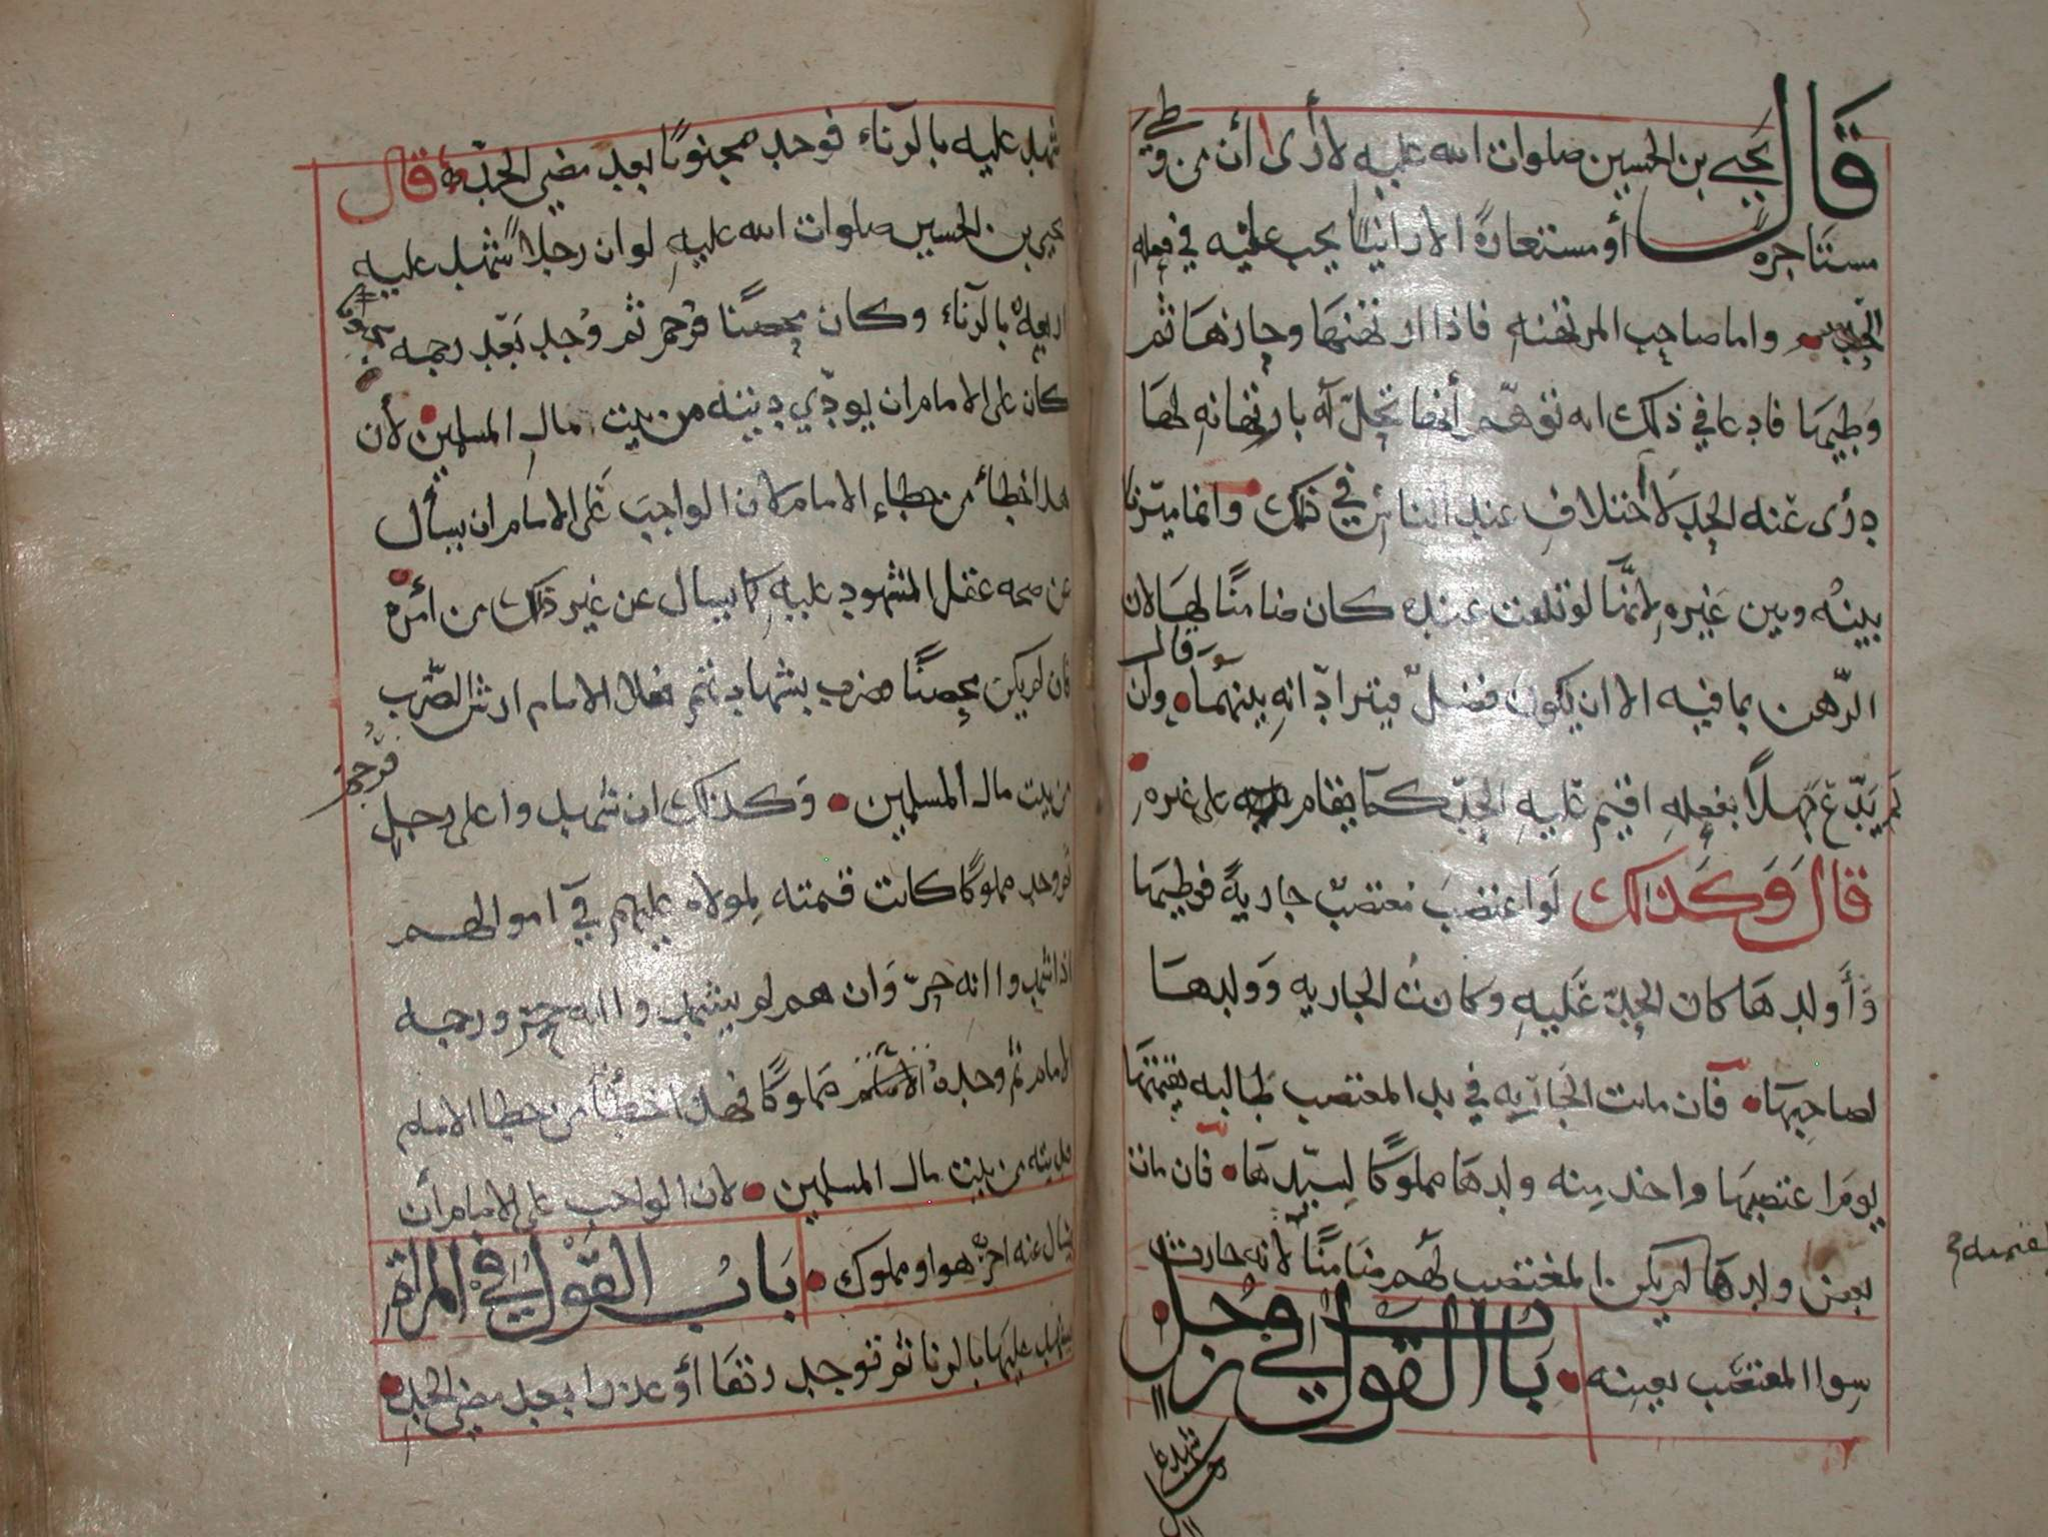 قال يحيى بن الحسين صلوات الله عليه لا أرى أن من وطئ
مستاجرة أو مستعارة الا زانيا يجب عليه في فعله
الحد واما صاحب المرتهنه فاذا ارتهنها وحازها ثم
وطيها فادعا في ذلك انه توهم أنها تحل له بارتهانه لها
درى عنه الحد لأختلاف عند الناس في ذلك وانما ميزنا
بينه وبين غيره لأنها لو تلفت عنده كان ضامنا لها لان
الرهن بما فيه الا ان يكون فضل فيترادانه بينهما قال وان
لم يدع جهلا بفعله اقيم عليه الحد كما يقام على غيره
قال وكذلك لو اغتصب مغتصب جارية فوطيها
وأولدها كان الحد عليه وكانت الجاريه وولدها
لصاحبها فان ماتت الجاريه في يد المغتصب طالبه بقيمتها
يوم اغتصبها واخذ منه ولدها مملوكا لسيدها فان مات
بعض ولدها لم يكن المغتصب لهم ضامنا لأنه حادث
سوا المغتصب بعينه باب القول في رجل
شهد عليه
بقيمته
شهد عليه بالزناء فوجد مجنونا بعد مضي الحد قال
يحيى بن الحسين صلوات الله عليه لو ان رجلا شهد عليه
اربعة بالزناء وكان محصنا فرجم ثم وجد بعد رجمه مجنونا
كان على الامام ان يودي ديته من بيت مال المسلمين لأن
هذا خطأ من خطاء الامام لان الواجب على الامام ان يسأل
عن صحه عقل المشهود عليه كما يسال عن غير ذلك من أمره
فان لم يكن محصنا ضرب بشهادتهم فعلى الامام ارش الضرب
من بيت مال المسلمين وكذلك ان شهدوا على رجل فرجم
ثم وجد مملوكا كانت قيمته لمولاه عليهم في اموالهم
اذا شهدوا انه حر وان هم لم يشهدوا انه حر ورجمه
الامام ثم وجده مملوكا فهذا خطأ من خطا الامام
فديته من بيت مال المسلمين لان الواجب على الامام أن
يسال عنه احر هو او مملوك باب القول في المرأة
يشهد عليها بالزنا ثم توجد رتقا أو عذرا بعد مضي الحد